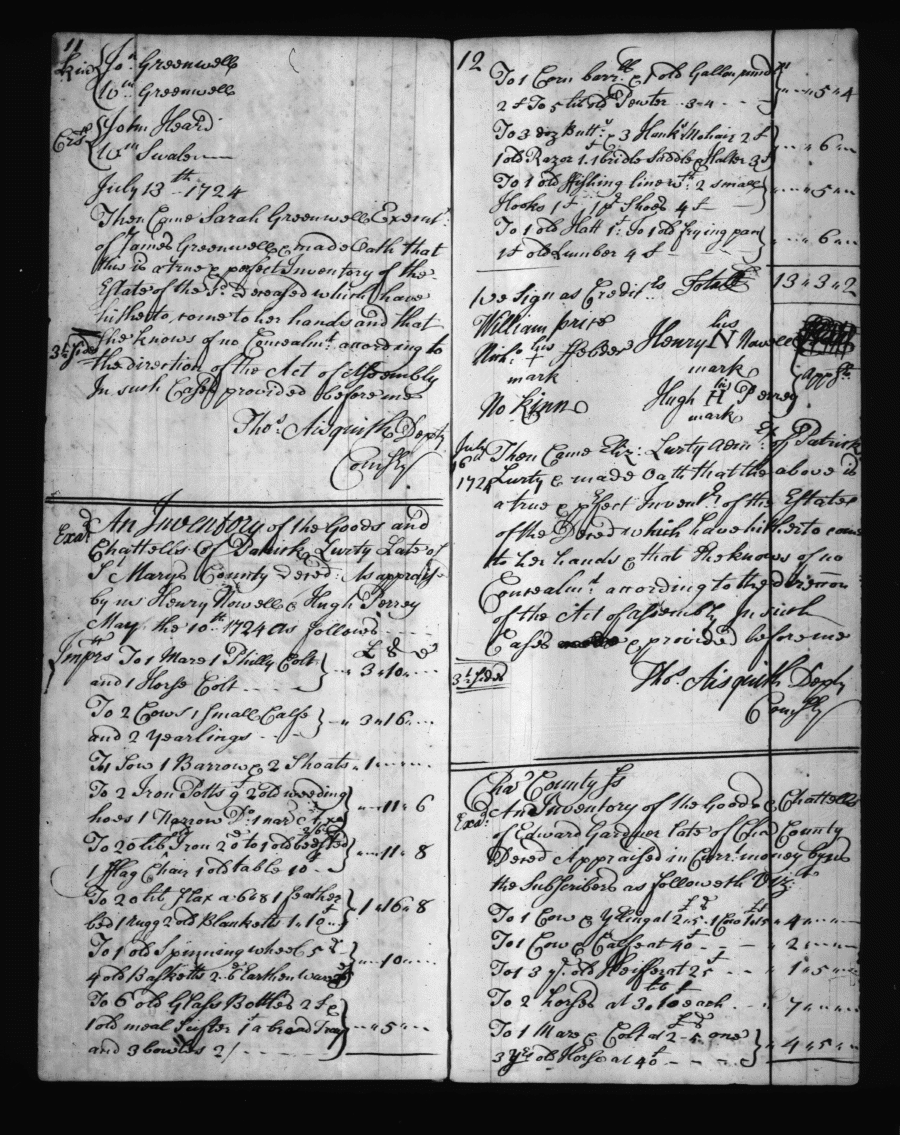 11
Kin { Jon Greenwell
Wm Greenwell
Crs { John Heard
Wm Swalen
July 13th 1724
Then Came Sarah Greenwell Execut
of James Greenwell & made Oath that
this is a true & perfect Inventory of the
Estate of the Sd Deceased which have
hitherto come to her hands and that
3½ sides She knows of no Concealmt according to
the direction of the Act of Assembly
In such Cases provided before me
Thos Aisquith Depty
Comsry
Exad An Inventory of the Goods and
Chattells Of Patrick Lurty Late of
St Marys County Deced: As appraised
by us Henry Nowell & Hugh Perrey
May the 10th 1724 as follows
£ S D
Imprs To 1 Mare 1 Philly Colt
and 1 Horse Colt - - - } 3 " 10 "
To 2 Cows 1 Small Calfe
and 2 Yearlings - - } 3 " 16 "
To 1 Sow 1 Barrow & 2 Shoats " 1 "
To 2 Iron Potts 2 old weeding
hoes 1 Narrow Do 1 nar Axe } " 11 " 6
To 20 lb Iron to 1 old bedsted
1 fflag Chair 1 old table 10 } " 11 " 8
To 20 lb flax a 6 & 1 feather
bed 1 rugg 2 old Blanketts 1 " 10 } 1 " 16 " 8
To 1 old Spinning wheel 5
4 old Basketts 2 - 6 Earthen ware } " 10 "
To 6 old Glass Bottles 2 s &
1 old meal Seifter 1 s a bread Tray
and 3 bowles 2/ - - } " 5 "
12
To 1 Corn barrll & 1 old Gallon
2 s To 5 lb old Pewter 3 - 4 - - } " 5 " 4
To 3 doz Butts & 3 Hanks Mohair 2 s
1 old Razor 1. 1 bridle Saddle & Halter 3 s } " 6 "
To 1 old ffishing line wth 2 small
Hooks 1 s 1 pr Shoes 4 s } " 5 "
To 1 old Hatt 1 s: To 1 old frying pan
1 s old Lumber 4 s } " 6 "
We Sign as Creditrs Totall 13 " 3 " 2
William price
his
Henry N Nowell
mark
his
Nicho + ffebber
mark
Apprs
his
Hugh H Perrey
mark
No Kinn
July 16th 1724 Then Came Eliz: Lurty Admx of Patrick
Lurty & made Oath that the above is
a true & pfect Inventy of the Estate
of the Deced which have hitherto come
to her hands & that She knows of no
Concealmt according to the direccon
of the Act of Assembly In such
Cases & provided before me
3½ sides
Thos Aisquith Depty
Comsry
Chas County Ss
Exad An Inventory of the Goods & Chattells
of Edward Gardner late of Cha County
Deced Appraised in Currt money by us
the Subscribers as followeth Vizt
To 1 Cow & Yrling at 2 - 5. 1 Cow 1 - 15 " 4 "
To 1 Cow & Calfe at 40 s - - - " 2 "
To 1 3 yr old Heiffer at 25 s - - " 1 " 5 "
To 2 horses at 3. 10 each - - " 7 "
To 1 Mare & Colt at 2 - 5 one
3 Yr old Horse at 40 s - - - } " 4 " 5 "